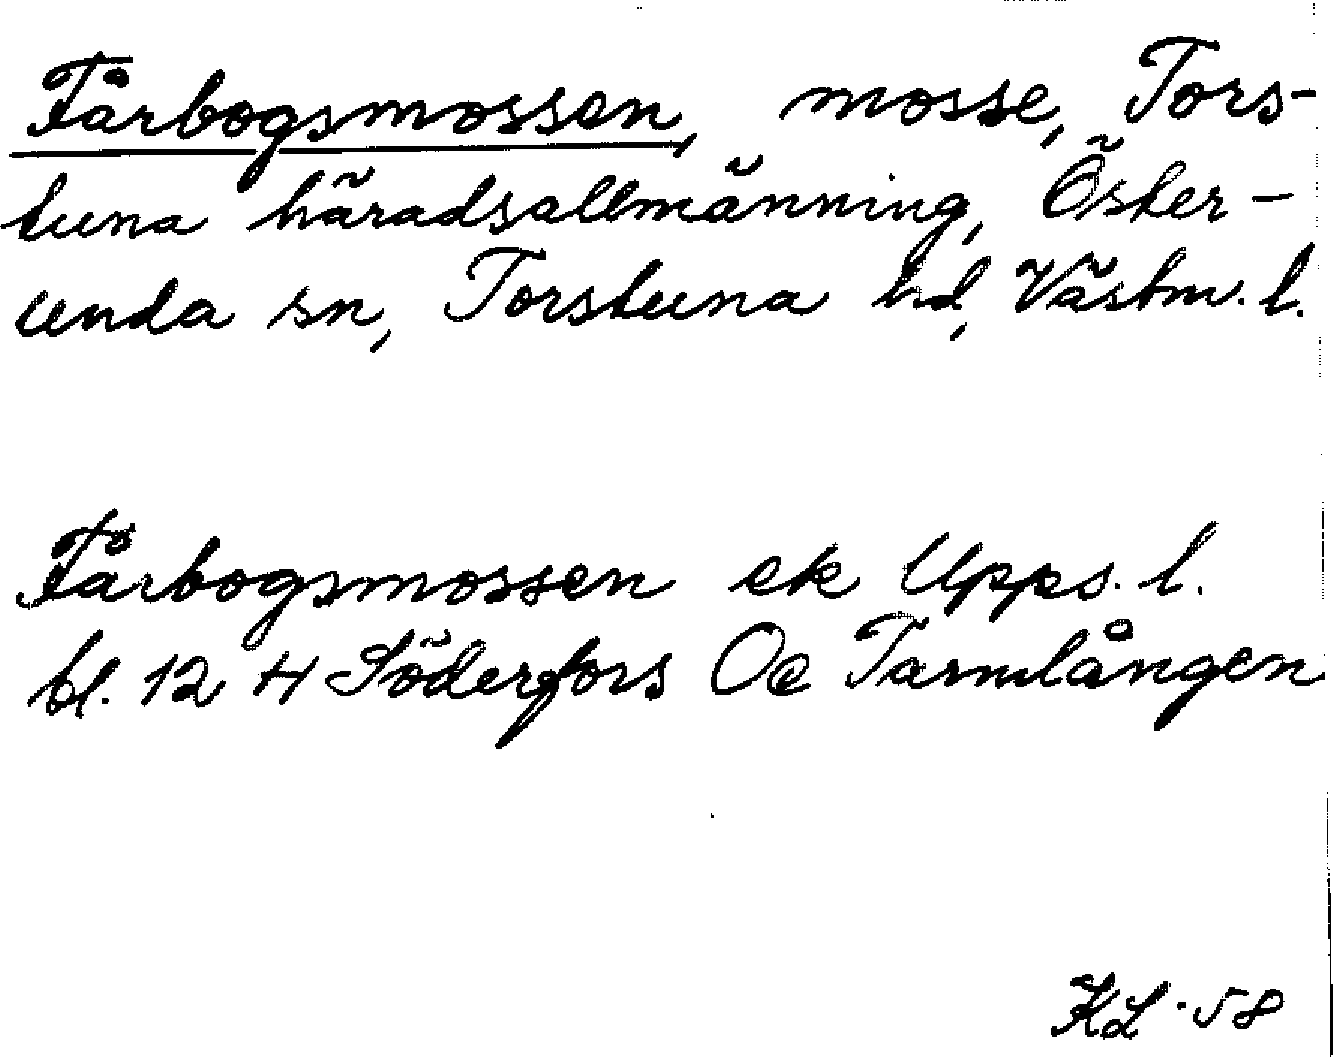 Fårbogsmossen, mosse, Tors-
tuna häradsallmänning, Öster-
unda sn, Torstuna hd, Västm. l.
Fårbogsmossen ek Upps. l.
bl. 12 H Söderfors Oe Tarmlången
KL ·58